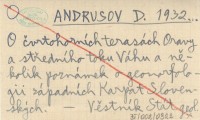 O
ANDRUSOV D. 1932...
O čtvrtohorních terasách Oravy
a středního toku Váhu a ně-
kolik poznámek o geomorfolo-
gii západních Karpat Sloven-
ských. - Věstník Stát. geol.